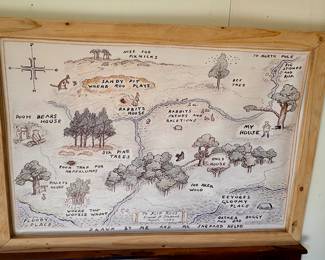 NICE FOR
PIKNICKS
TO NORTH POLE
BIG
STONES
AND
ROX
SANDY PIT
WHERE ROO PLAYS
BEE
TREE
RABBITS
HOUSE
RABBITS
FRENDS AND
RELATIONS
POOH BEARS
HOUSE
MY
HOUSE
SIX PINE
TREES
POOH TRAP FOR
HEFFALUMPS
OWLS
HOUSE
PIGLETS
HOUSE
100 AKER
WOOD
WHERE THE
WOOZLE WASNT
EEYORES
GLOOMY PLACE
FLOODY
PLACE
RATHER BOGGY
AND SAD
DRAWN BY ME AND MR SHEPARD HELPD